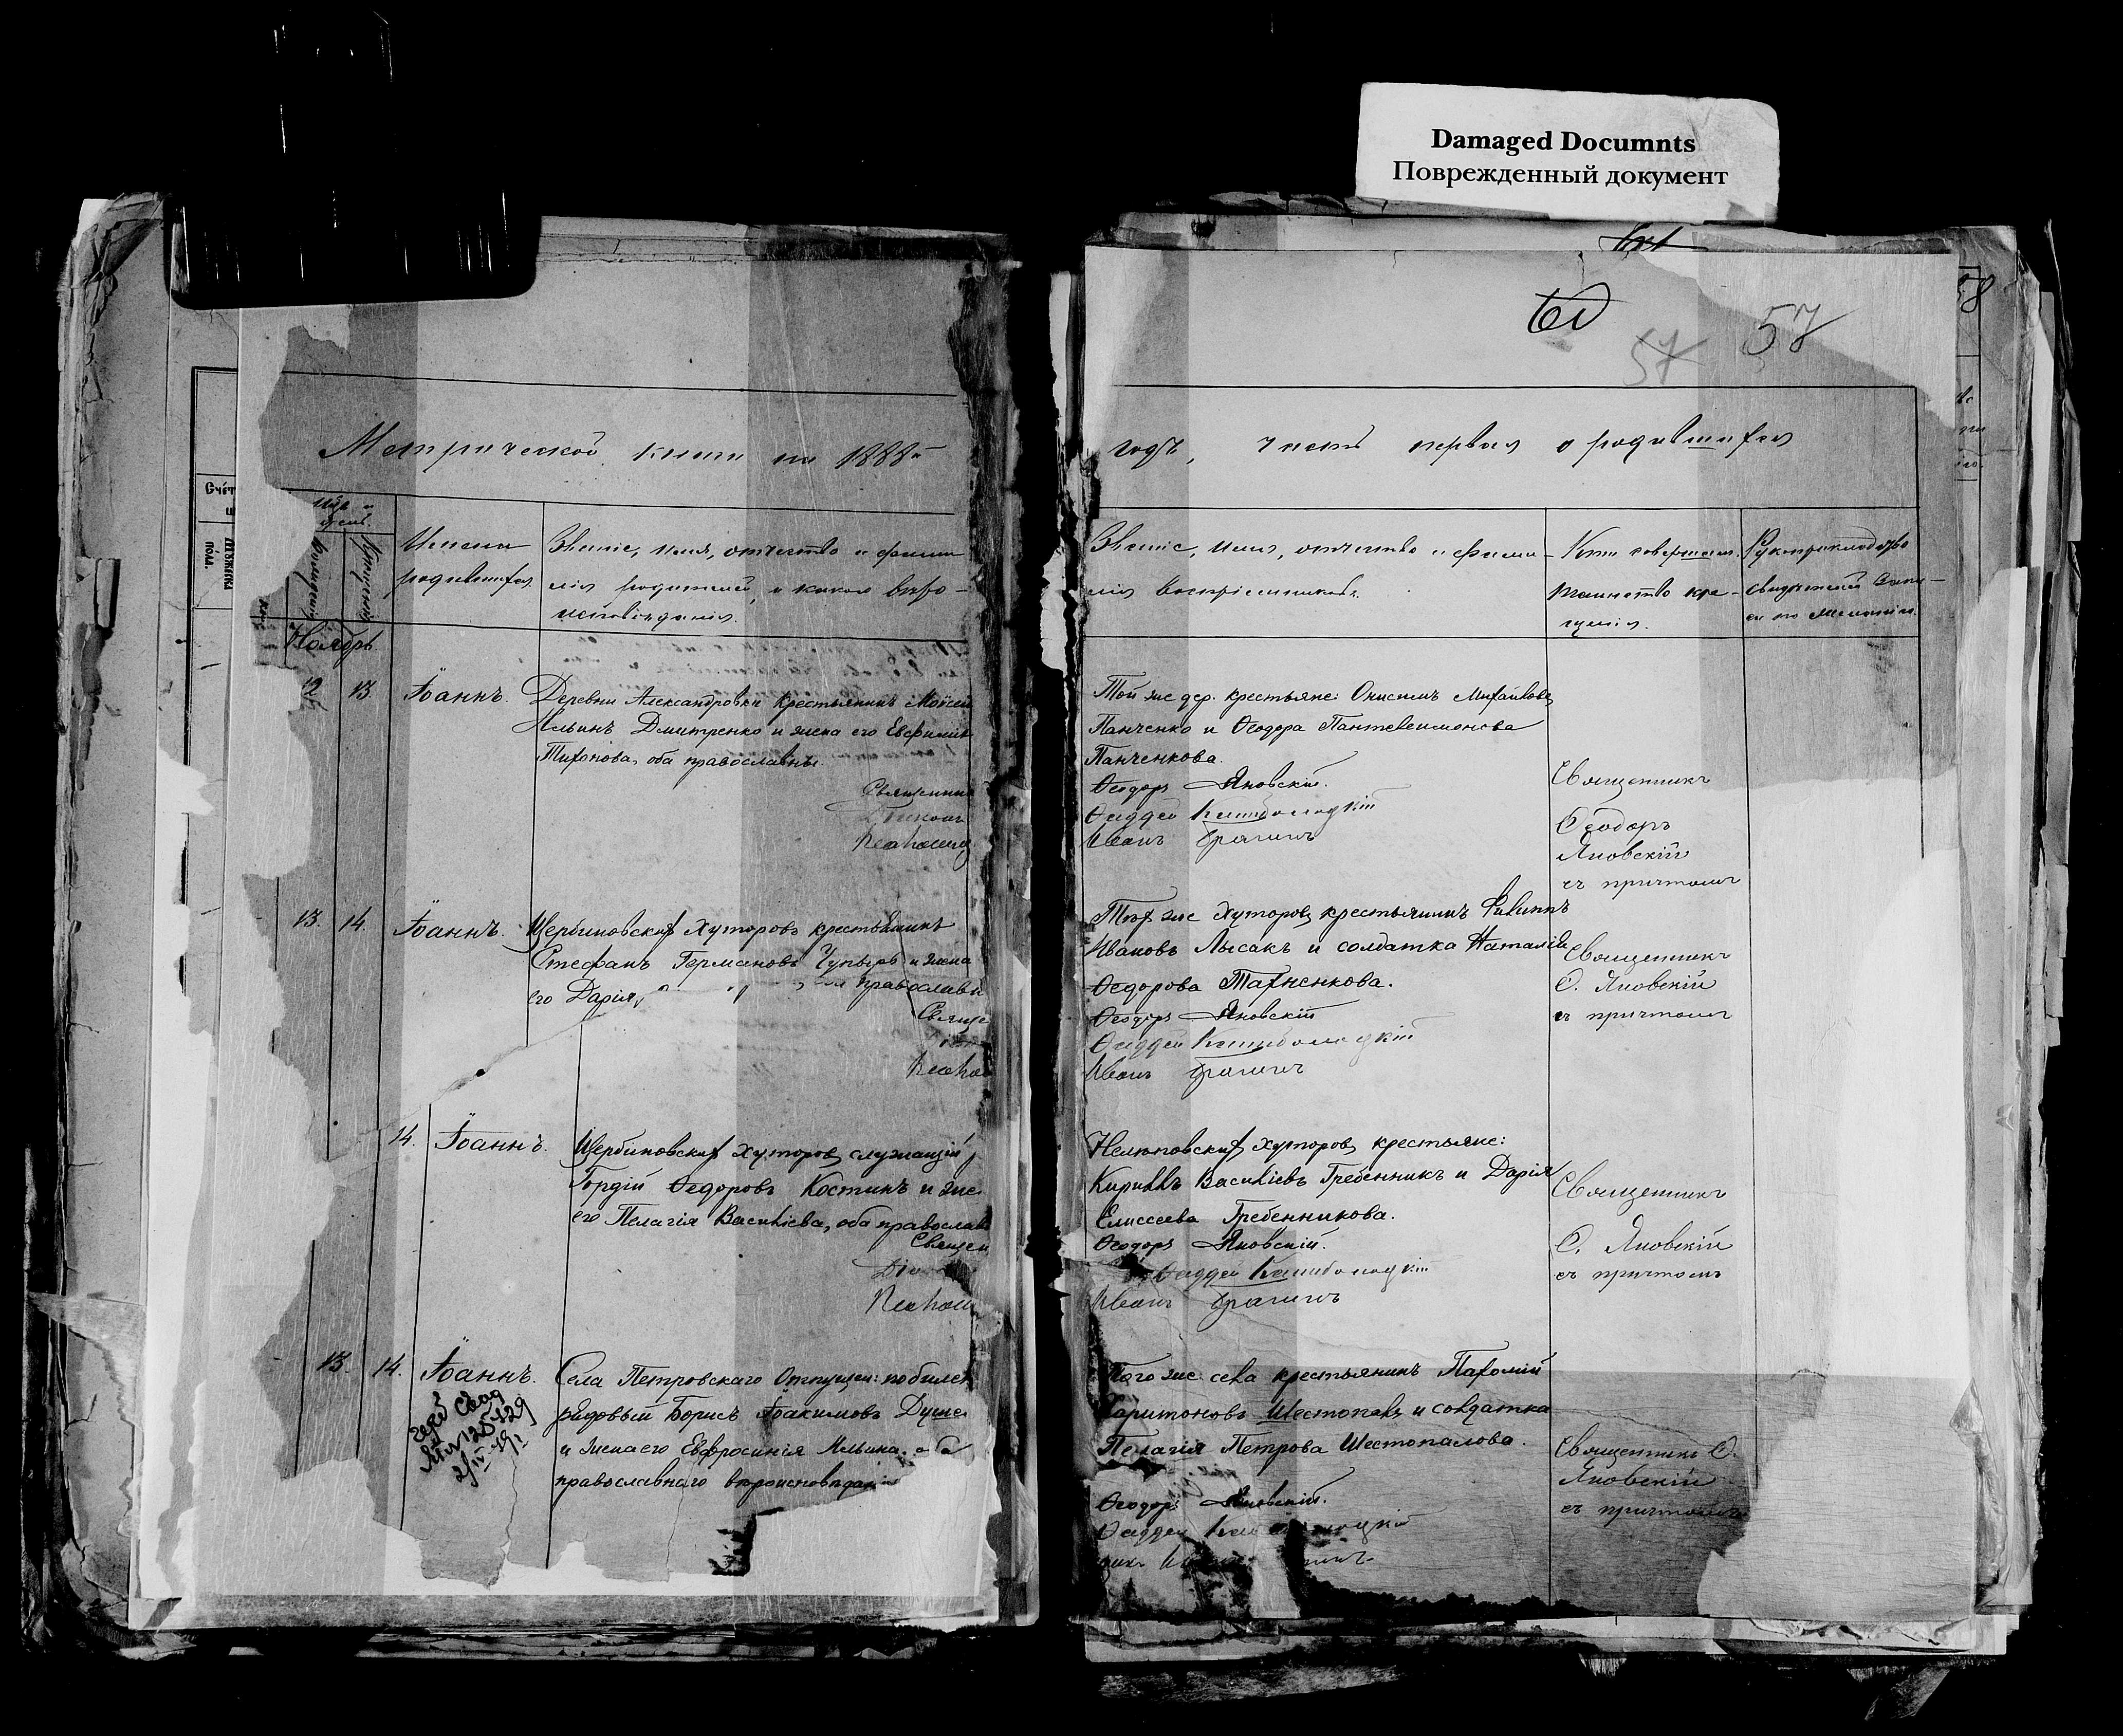 Damaged Documnts
Поврежденный документ
60
57
57
58
Метрической книги на 1888й
годъ, часть первая о родившихся
Счетъ
женска
пола.
Мѣс. и
день.
Рожденія
Крещенія
Имена
родившихся.
Званіе, имя, отчество и фами
лія родителей, и какого вѣро-
исповѣданія.
Званіе, имя, отчество и фами-
лія воспріемниковъ.
Кто совершалъ
таинство кре-
щенія.
Рукоприкладство
свидѣтелей запи-
си по желанію.
Ноябрь.
12 13. Іоаннъ.
Деревни Александровки крестьянинъ Моѵсей
Ильинъ Дмитренко и жена его Евфимія
Тихонова, оба православны.
Священни
Той же дер. крестьяне: Онисимъ Михайловъ
Панченко и Ѳеодора Пантелеимонова
Панченкова.
Ѳеодоръ Яновскій.
Ѳаддей
Иванъ Брагинъ
Священникъ
Ѳеодоръ
Яновскій
съ причтомъ
13. 14. Іоаннъ.
Щербиновскихъ хуторовъ крестьянинъ
Стефанъ Германовъ Чупырь и жена
его Дарія, православн
Свяще
Тѣхъ же хуторовъ крестьянинъ Филиппъ
Ивановъ Лысакъ и солдатка Наталія
Ѳедорова Тахненкова.
Ѳеодоръ Яновскій
Ѳаддей
Иванъ Брагинъ
Священникъ
Ѳ. Яновскій
съ причтомъ
14. Іоаннъ.
Щербиновскихъ хуторовъ служащій
Гордій Ѳедоровъ Костинъ и же
его Пелагія Василіева, оба православ
Священ
Нелюповскихъ хуторовъ крестьяне:
Кириллъ Василіевъ Гребенникъ и Дарія
Елиссеева Гребенникова.
Ѳеодоръ Яновскій.
Ѳаддей
Иванъ Брагинъ
Священникъ
Ѳ. Яновскій
съ причтомъ
13. 14. Іоаннъ.
Села Петровскаго Отпущен: по билет
рядовый Борисъ Іоакимовъ Душе
и жена его Евфросинія Ильина, оба
православнаго вѣроисповѣдан
Того же села крестьянинъ Пахомій
Харитоновъ Шестопалъ и солдатка
Пелагія Петрова Шестопалова.
Ѳеодоръ Яновскій.
Ѳаддей
Священникъ Ѳ.
Яновскій
съ причтомъ